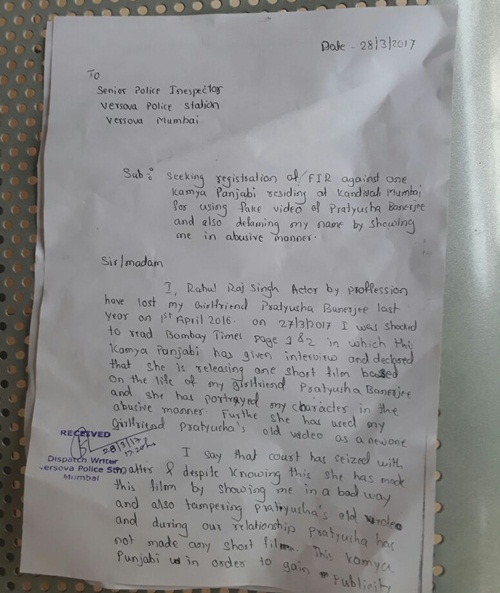 Date - 28/3/2017
To
Senior Police Inespector
Versova Police Station
Versova Mumbai.
Sub: Seeking registration of FIR against one
Kamya Panjabi residing at Kandivali Mumbai
for using fake video of Pratyusha Banerjee
and also defaming my name by showing
me in abusive manner.
Sir/madam
I, Rahul Raj Singh Actor by proffession
have lost my Girlfriend Pratyusha Banerjee last
year on 1st April 2016. on 27/3/2017 I was shocked
to read Bombay Times page 1 & 2 in which this
Kamya Panjabi has given interview and declared
that she is releasing one short film based
on the life of my girlfriend Pratyusha Banerjee
and she has portrayed my character in the
abusive manner. Furthe she has used my
Girlfriend pratyusha's old video as a newone
RECEIVED
28/3/17
Dispatch Writer
Versova Police Stn
Mumbai
I say that court has seized with
matter & despite knowing this she has made
this film by showing me in a bad way
and also tampering Pratyusha's old
and during our relationship Pratyusha has
not made any short film. This Kamya
Punjabi in order to gain Publicity